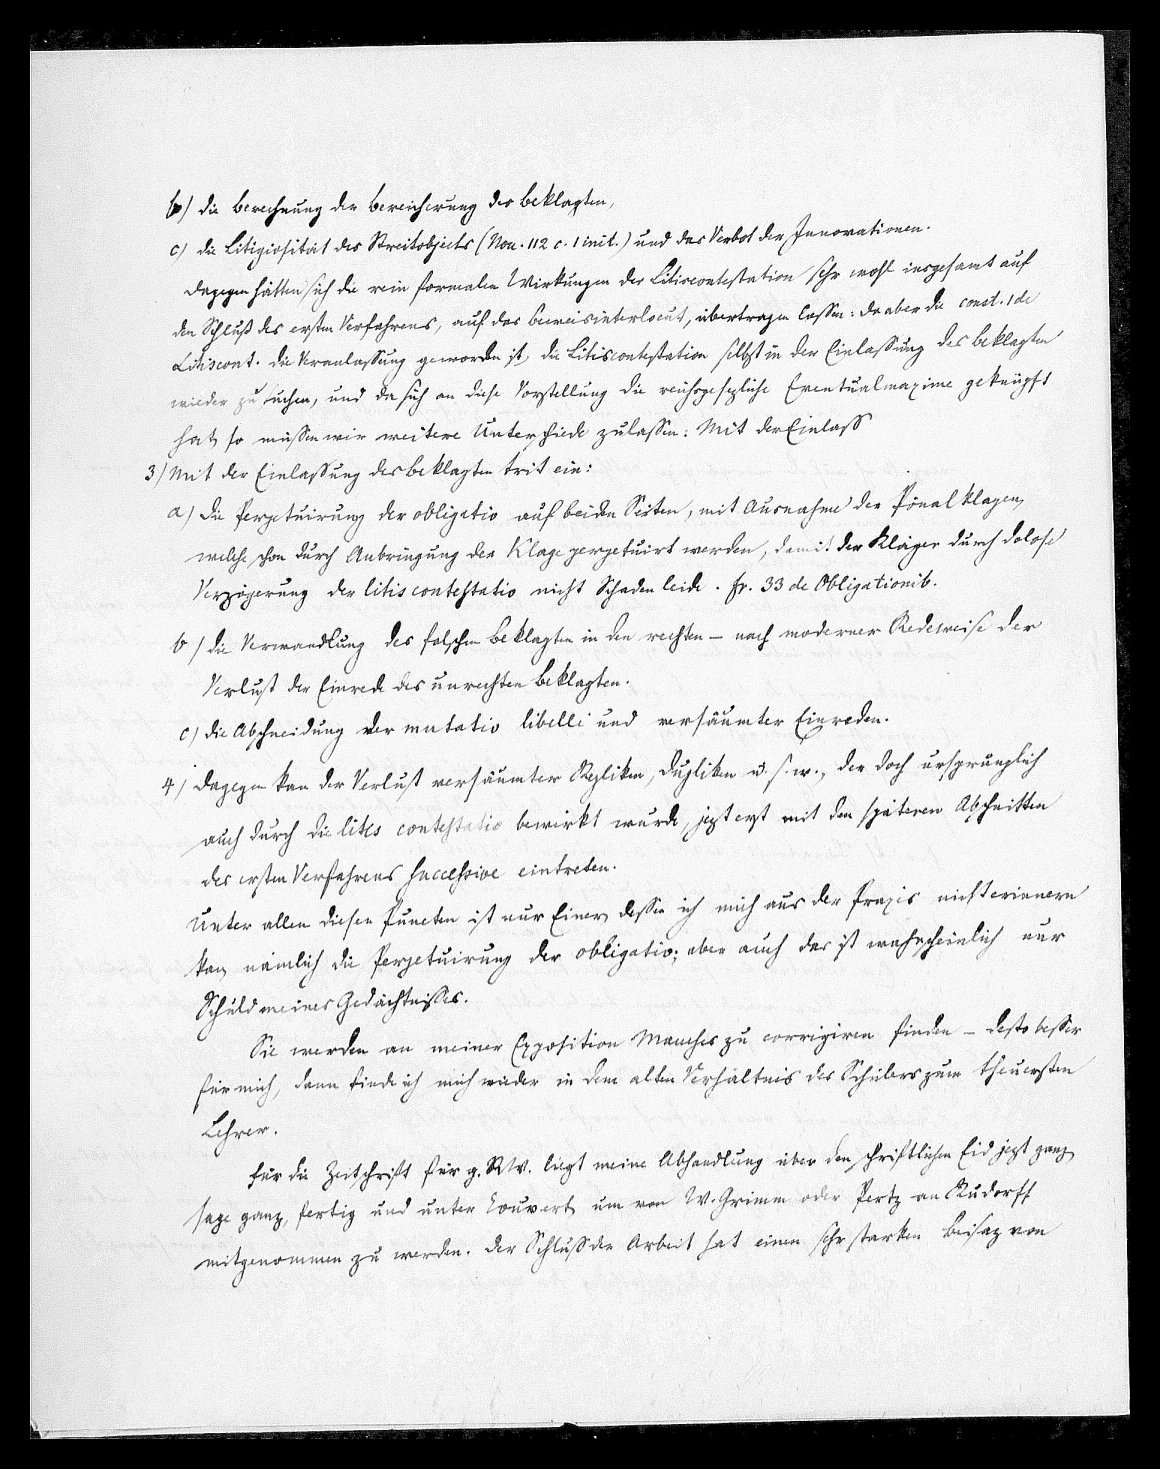 b) die Berechnung der Bereicherung des Beklagten,
c) die Litigiosität des Streitobjects (Nov. 112 c. 1 init.) und das Verbot der Innovationen.
dagegen hätten sich die rein formalen Wirkungen der Litiscontestation sehr wohl insgesamt auf
den Schluß des ersten Verfahrens, auf das Beweisinterlocut, übertragen lassen: da aber die const. 1 de
Litiscont. die Veranlassung geworden ist, die Litiscontestation selbst in der Einlassung des Beklagten
wieder zu suchen, und da sich an diese Vorstellung die reichsgesezliche Eventualmaxime geknüpft
hat, so müssen wir weitere Unterschiede zulassen: Mit der Einlass
3) Mit der Einlassung des Beklagten trit ein:
a) die Perpetuirung der obligatio auf beiden Seiten, mit Ausnahme der Pönalklagen,
welche schon durch Anbringung der Klage perpetuirt werden, damit der Kläger durch dolose
Verzögerung der litis contestatio nicht Schaden leide. fr. 33 de Obligationib.
b) die Verwandlung des falschen Beklagten in den rechten – nach moderner Redeweise der
Verlust der Einrede des unrechten Beklagten.
c) die Abschneidung der mutatio libelli und versäumter Einreden.
4) dagegen kan der Verlust versäumter Repliken, Dupliken u. s. w., der doch ursprünglich
auch durch die litis contestatio bewirkt wurde, jezt erst mit den späteren Abschnitten
des ersten Verfahrens successive eintreten.
Unter allen diesen Puncten ist nur Einer, dessen ich mich aus der Praxis nicht erinnern
kan, nämlich die Perpetuirung der obligatio; aber auch das ist wahrscheinlich nur
Schuld meines Gedächtnisses.
Sie werden an meiner Exposition Manches zu corrigiren finden – desto besser
für mich, dann finde ich mich wieder in dem alten Verhältnis des Schülers zum theuersten
Lehrer.
Für die Zeitschrift für g. RW. liegt meine Abhandlung über den schriftlichen Eid jezt ganz,
sage ganz, fertig und unter Couvert, um von W. Grimm oder Pertz an Rudorff
mitgenommen zu werden. Der Schluß der Arbeit hat einen sehr starken Beisaz von